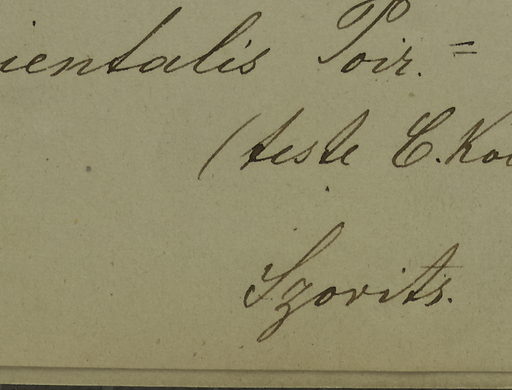 ientalis Poir. =
(teste C. Koc
Szovits.